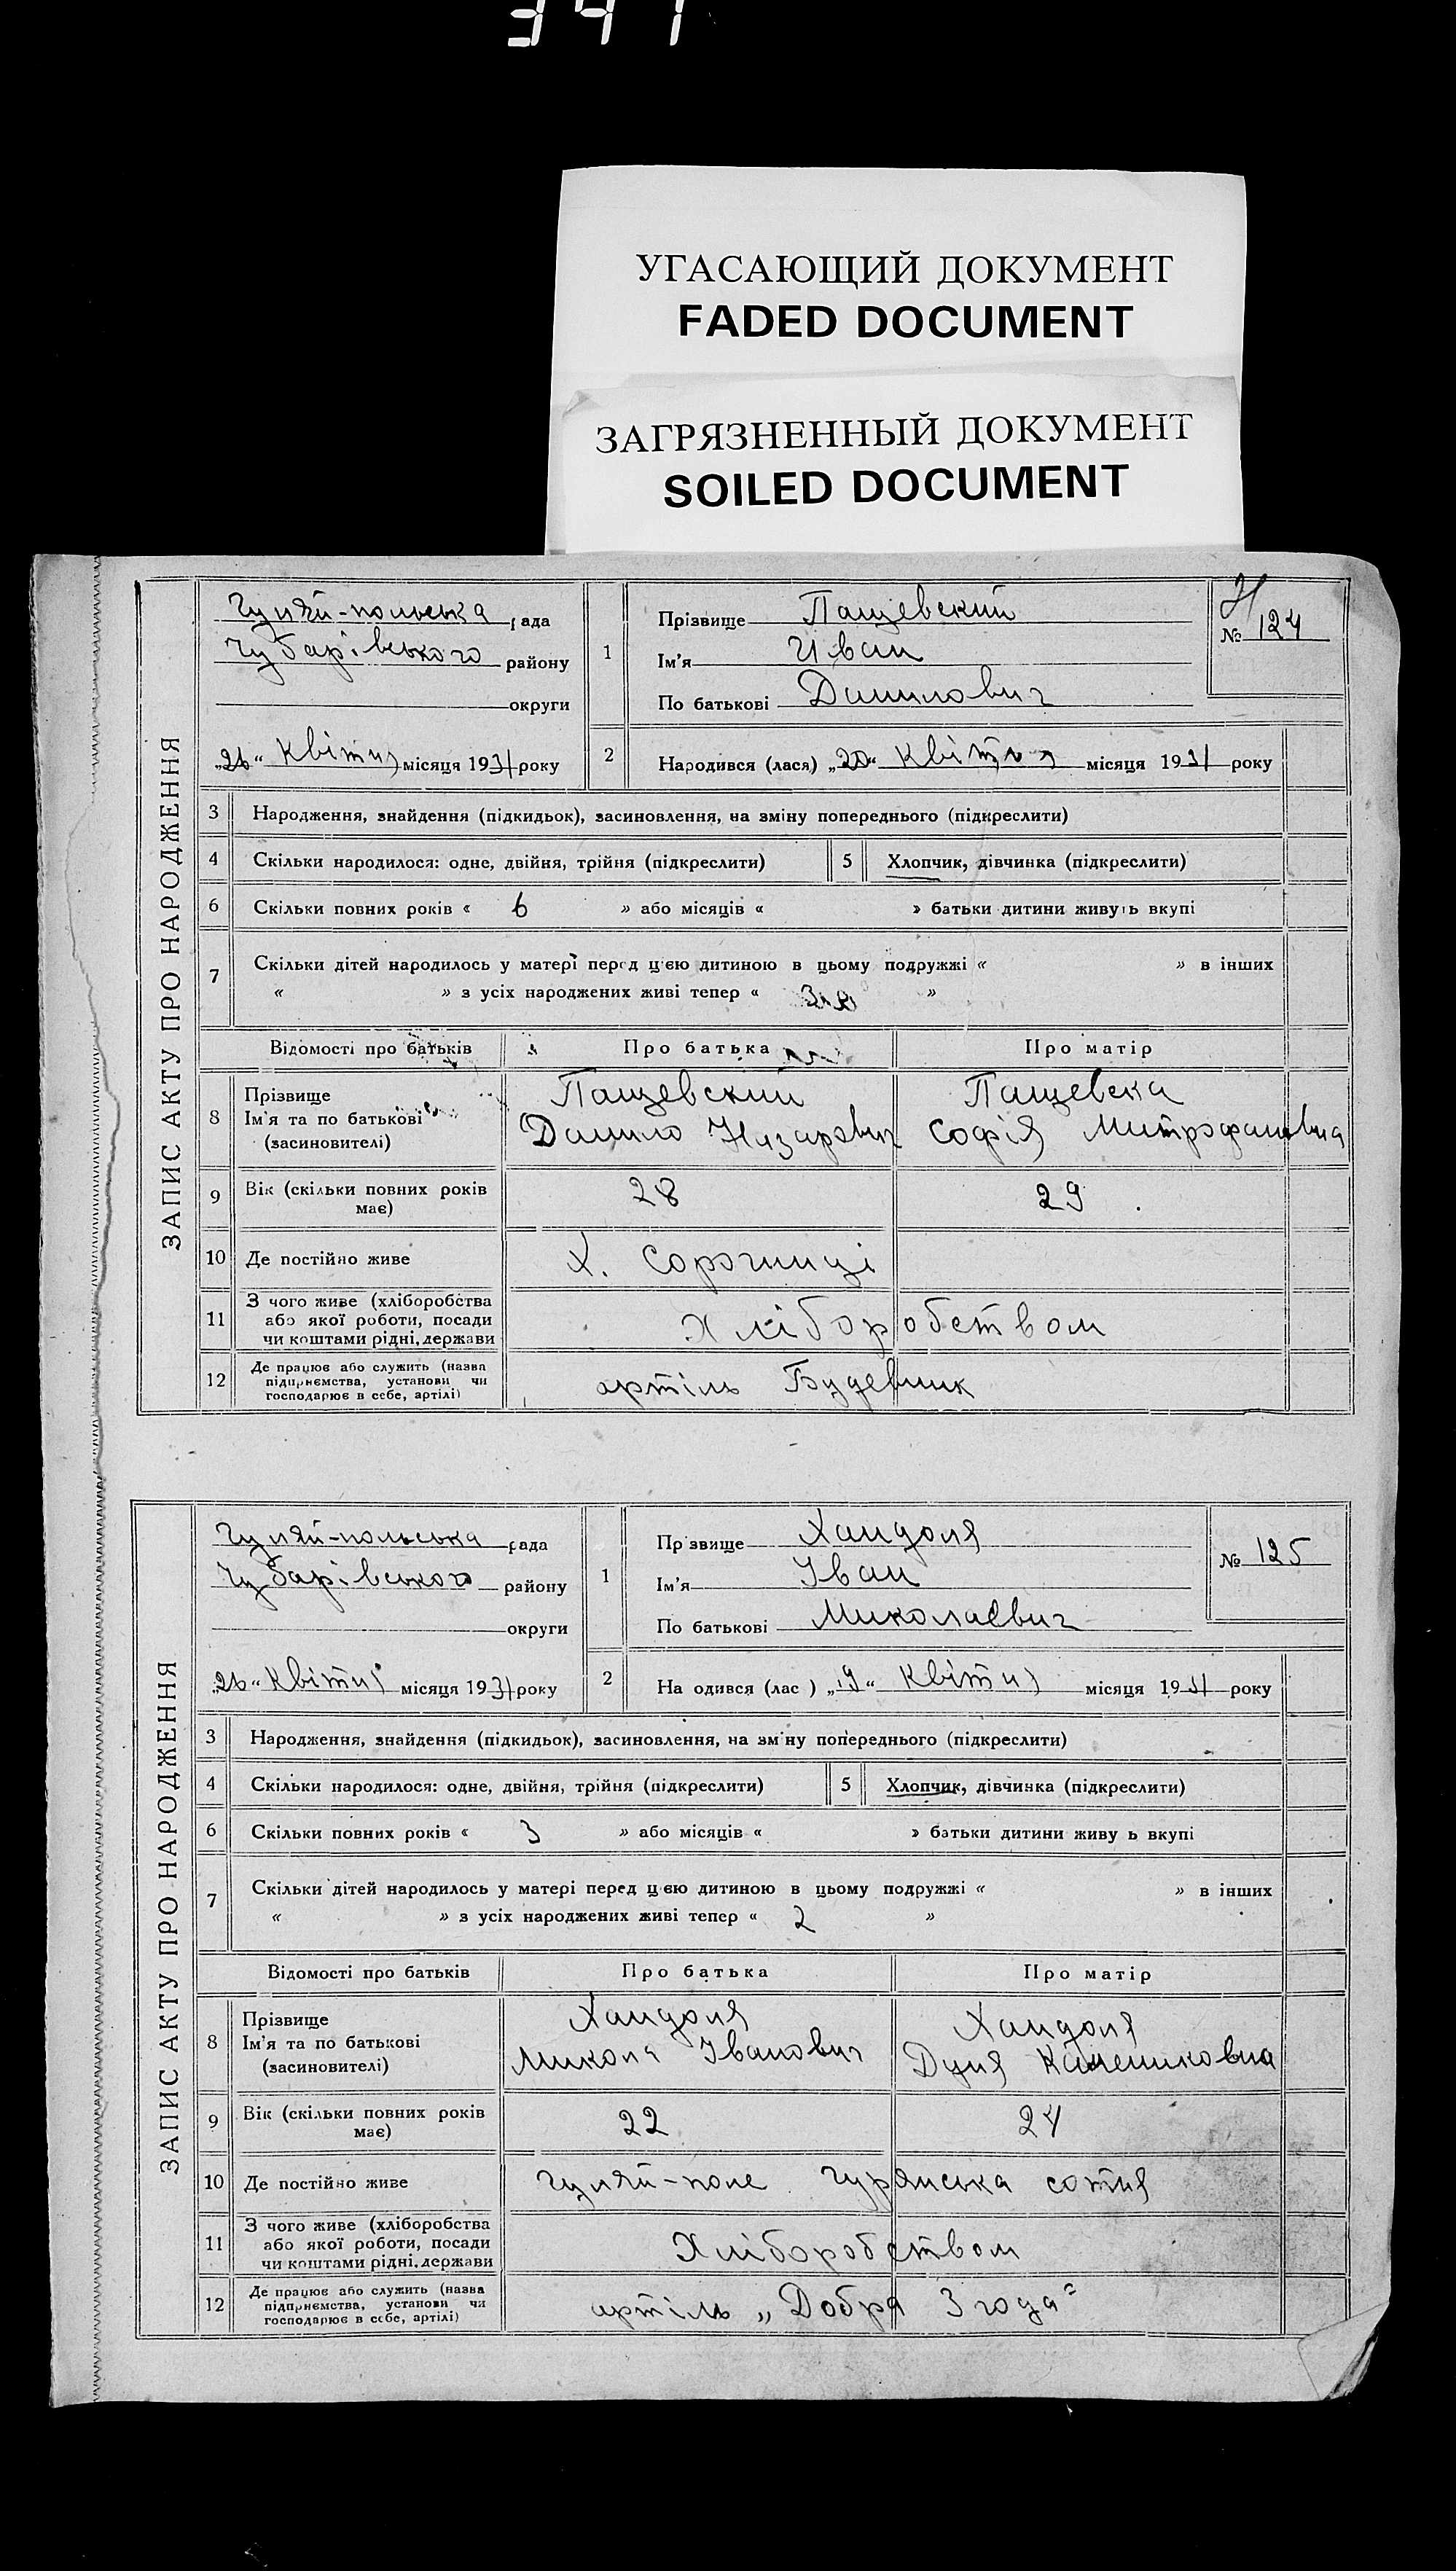 341
УГАСАЮЩИЙ ДОКУМЕНТ
FADED DOCUMENT
ЗАГРЯЗНЕННЫЙ ДОКУМЕНТ
SOILED DOCUMENT
ЗАПИС АКТУ ПРО НАРОДЖЕННЯ
Гуляй-польська рада
Чубарівського району
округи
„26“ Квітня місяця 1931 року
1
Прізвище Пащевский
Ім'я Иван
По батькові Данилович
№ 124
2
Народився (лася) „20“ Квітня місяця 1931 року
3 Народження, знайдення (підкидьок), засиновлення, на зміну попереднього (підкреслити)
4 Скільки народилося: одне, двійня, трійня (підкреслити) 5 Хлопчик, дівчинка (підкреслити)
6 Скільки повних років « 6 » або місяців « » батьки дитини живуть вкупі
7 Скільки дітей народилось у матері перед цією дитиною в цьому подружжі « » в інших
« » з усіх народжених живі тепер « »
Відомості про батьків Про батька Про матір
8 Прізвище Ім'я та по батькові (засиновителі)
Пащевский Пащевска
Данило Назарович Софія Митрофановна
9 Вік (скільки повних років має) 28 29
10 Де постійно живе Х. Сорочинці
11 З чого живе (хліборобства або якої роботи, посади чи коштами рідні, держави Хліборобством
12 Де працює або служить (назва підприємства, установи чи господарює в себе, артілі) артіль Будевник
ЗАПИС АКТУ ПРО НАРОДЖЕННЯ
Гуляй-польська рада
Чубарівського району
округи
„26“ Квітня місяця 1931 року
1
Пр звище Хандоля
Ім'я Іван
По батькові Миколаєвич
№ 125
2
На одився (лас ) „19“ Квітня місяця 1931 року
3 Народження, знайдення (підкидьок), засиновлення, на зм ну попереднього (підкреслити)
4 Скільки народилося: одне, двійня, трійня (підкреслити) 5 Хлопчик, дівчинка (підкреслити)
6 Скільки повних років « 3 » або місяців « » батьки дитини живу ь вкупі
7 Скільки дітей народилось у матері перед цією дитиною в цьому подружжі « » в інших
« » з усіх народжених живі тепер « 2 »
Відомості про батьків Про батька Про матір
8 Прізвище Ім'я та по батькові (засиновителі)
Хандоля Хандоля
Микола Іванович Дуня
9 Вік (скільки повних років має) 22 24
10 Де постійно живе Гуляй-поле Гурянська сотня
11 З чого живе (хліборобства або якої роботи, посади чи коштами рідні, держави Хліборобством
12 Де працює або служить (назва підприємства, установи чи господарює в себе, артілі) артіль „Добра Згода“